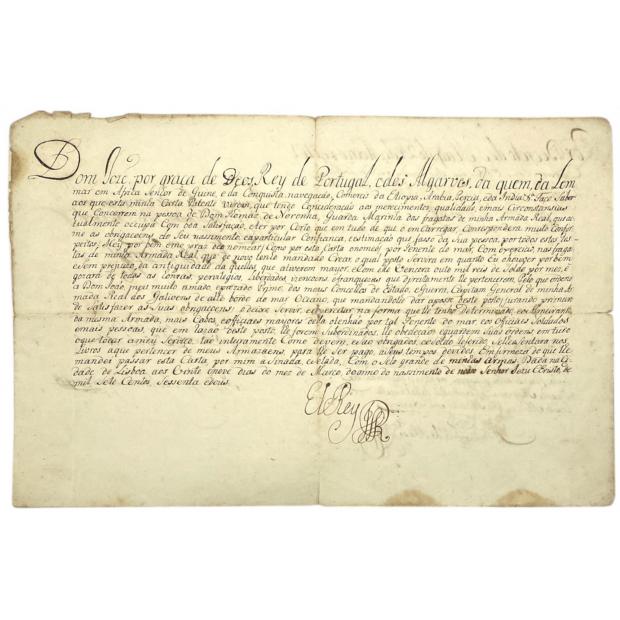 Dom Joze por graça de Deos, Rey de Portugal, edos Algarves, da quem, da Lem
mar em Africa Senhor de Guine, e da Conquista, navegação, Comercio da Etiopia, Arabia, Percia, e da India &. Faço Saber
aos que esta minha Carta Patente virem, que tendo Concideração aos merecimentos, qualidade, emais Circonstansias
que Concorrem na pessoa de Dom Romão de Noronha, Guarda Marinha das fragatas de minha Armada Real, que ac
tualmente occupa Com boa Satisfação, eter por Certo que em tudo de que o emCarregar, Corresponderá muito Confor
me as obrigaçoens do Seu nascimento, eaparticular Confiança, eestimação que fasso da sua pessoa, por todos estes Res
peitos; Hey por bem eme praz de o nomear (Como por esta Carta onomeo) por Tenente do mar, Com exercicio nas fraga
tas de minha Armada Real, que de novo tenho mandado Crear, o qual posto Servirá em quanto Eu ohouver por bem
eSem prejuizo da antiguidade da quelles, que ativerem mayor, eCom elle Vencerá outo mil reis de Soldo por mez, e
gozará de todas as honras, previlegios, Liberdades, izencoens, efranquezas que direitamente lhe pertencerem. Pelo que ordeno
a Dom João, meu muito amado eprezado Primo, dos meus Concelhos de Estado, eGuerra, Capitam General de minha Ar
mada Real dos Galioens de alto bordo do mar Oceano, que mandandolhe dar aposse deste posto, jurando primeiro
de Satisfazer as Suas obrigaçoens, o deixe Servir, eexercitar na forma que lhe tenho determinado, eos Generaes
da mesma Armada, mais Cabos, eofficiaes mayores della otenhão por tal Tenente do mar, eos Officiaes Soldados
emais pessoas, que em razão deste posto, lhe forem Subordinados, lhe obedeção, eguardem Suas ordens em tudo
oque tocar a meu Serviço, tão inteyramente Como devem, eSão obrigados, eoSoldo referido, Selhe asentará nos
Livros aque pertencer de meus Armazens, para lhe Ser pago, aSeus tempos devidos. Em firmeza do que lhe
mandei passar esta Carta por mim aSinada, eSelada, Com o Selo grande de minhas Armas. Dada na Ci
dade de Lisboa aos Vinte enove dias do mez de Março, do anno do nascimento de nosso Senhor Jezu Christo, de
mil Sete Centos, Sessenta edous.
El Rey